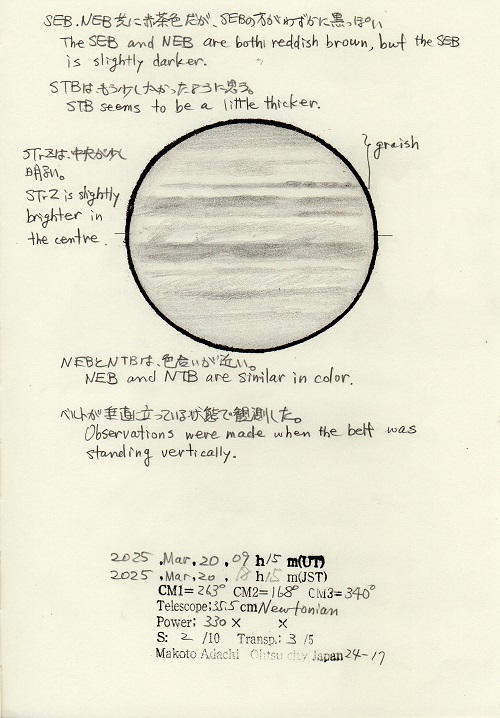 SEB.NEB 共に赤茶色だが、SEBの方がわずかに黒っぽい
The SEB and NEB are both reddish brown, but the SEB
is slightly darker.
STBはもう少し太かったように思う。
STB seems to be a little thicker.
graish
STrZは、中央が少し
明るい。
STrZ is slightly
brighter in
the centre.
NEBとNTBは、色合いが近い。
NEB and NTB are similar in color.
ベルトが垂直に立っている状態で観測した。
Observations were made when the belt was
standing vertically.
2025 .Mar.20 .09 h15 m(UT)
2025 .Mar.20 .18 h15 m(JST)
CM1=263° CM2=168° CM3=340°
Telescope;35.5cm Newtonian
Power; 330× ×
S: 2 /10 Transp.; 3 /5
Makoto Adachi Ohtsu city Japan 24-17